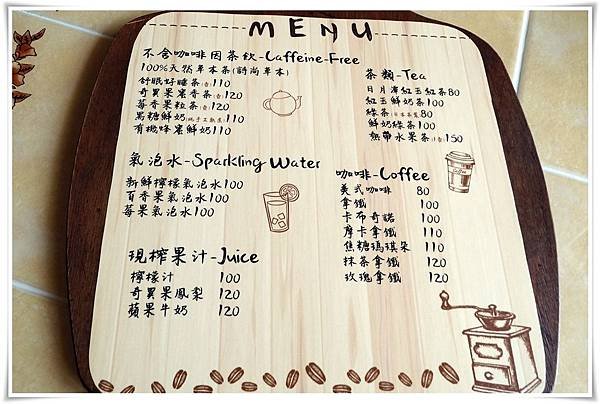 MENU
不含咖啡因茶飲-Caffeine-Free
100%天然草本茶(詩尚草本)
舒眠好睡茶(壺)110
奇異果蜜香茶(壺)120
莓香果粒茶(壺)120
黑糖鮮奶(純手工熬煮)110
有機蜂蜜鮮奶110
氣泡水-Sparkling Water
新鮮檸檬氣泡水100
百香果氣泡水100
莓果氣泡水100
現榨果汁-Juice
檸檬汁 100
奇異果鳳梨 120
蘋果牛奶 120
茶類-Tea
日月潭紅玉紅茶80
紅玉鮮奶茶100
綠茶(日本茶葉)80
鮮奶綠茶100
熱帶水果茶(壺)150
咖啡-Coffee
美式咖啡 80
拿鐵 100
卡布奇諾 100
摩卡拿鐵 110
焦糖瑪琪朵 110
抹茶拿鐵 120
玫瑰拿鐵 120